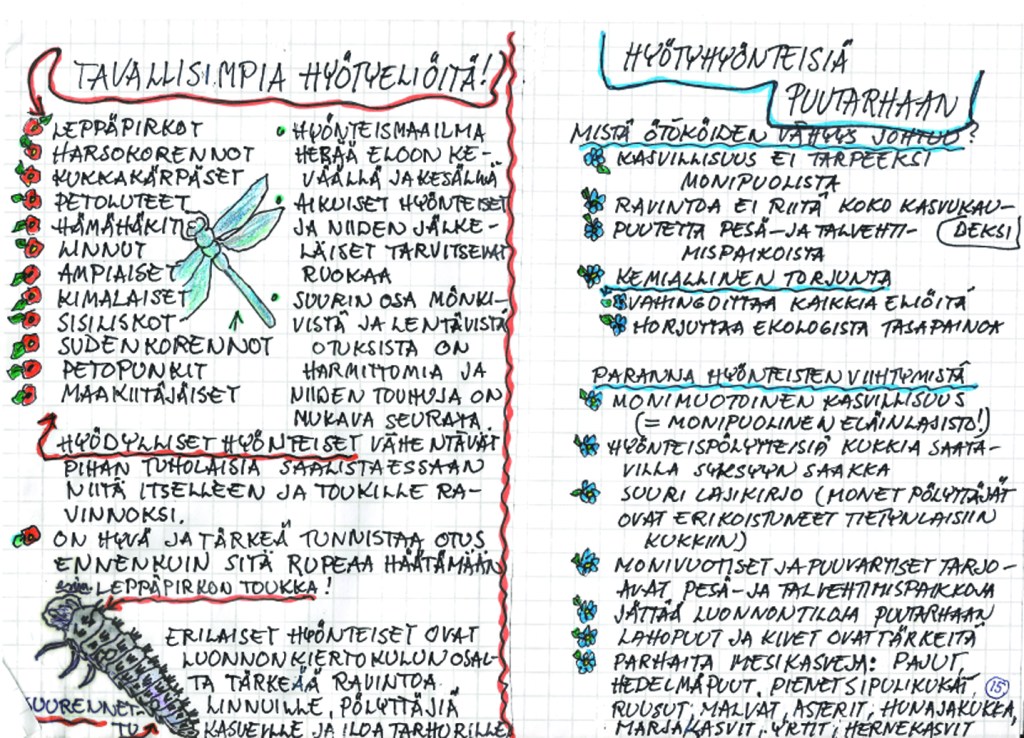 TAVALLISIMPIA HYÖTYELIÖITÄ!
LEPPÄPIRKOT
HARSOKORENNOT
KUKKAKÄRPÄSET
PETOLUTEET
HÄMÄHÄKIT
LINNUT
AMPIAISET
KIMALAISET
SISILISKOT
SUDENKORENNOT
PETOPUNKIT
MAAKIITÄJÄISET
• HYÖNTEISMAAILMA
HERÄÄ ELOON KE-
VÄÄLLÄ JA KESÄLLÄ
• AIKUISET HYÖNTEISET
JA NIIDEN JÄLKE-
LÄISET TARVITSEVAT
RUOKAA
• SUURIN OSA MÖNKI-
VISTÄ JA LENTÄVISTÄ
OTUKSISTA ON
HARMITTOMIA JA
NIIDEN TOUHUJA ON
MUKAVA SEURATA
HYÖDYLLISET HYÖNTEISET VÄHENTÄVÄT
PIHAN TUHOLAISIA SAALISTAESSAAN
NIITÄ ITSELLEEN JA TOUKILLE RA-
VINNOKSI.
ON HYVÄ JA TÄRKEÄ TUNNISTAA OTUS
ENNENKUIN SITÄ RUPEAA HÄÄTÄMÄÄN
LEPPÄPIRKON TOUKKA!
ERILAISET HYÖNTEISET OVAT
LUONNONKIERTOKULUN OSAL-
TA TÄRKEÄÄ RAVINTOA
LINNUILLE, PÖLYTTÄJIÄ
KASVEILLE JA ILOA TARHURILLE
SUURENNET-
TU
HYÖTYHYÖNTEISIÄ
PUUTARHAAN
MISTÄ ÖTÖKÖIDEN VÄHYYS JOHTUU?
KASVILLISUUS EI TARPEEKSI
MONIPUOLISTA
RAVINTOA EI RIITÄ KOKO KASVUKAU-
DEKSI
PUUTETTA PESÄ- JA TALVEHTI-
MISPAIKOISTA
KEMIALLINEN TORJUNTA
VAHINGOITTAA KAIKKIA ELIÖITÄ
HORJUTTAA EKOLOGISTA TASAPAINOA
PARANNA HYÖNTEISTEN VIIHTYMISTÄ
MONIMUOTOINEN KASVILLISUUS
(= MONIPUOLINEN ELÄINLAJISTO!)
HYÖNTEISPÖLYTTEISIÄ KUKKIA SAATA-
VILLA SYKSYYN SAAKKA
SUURI LAJIKIRJO (MONET PÖLYTTÄJÄT
OVAT ERIKOISTUNEET TIETYNLAISIIN
KUKKIIN)
MONIVUOTISET JA PUUVARTISET TARJO-
AVAT PESÄ- JA TALVEHTIMISPAIKKOJA
JÄTTÄÄ LUONNONTILOJA PUUTARHAAN
LAHOPUUT JA KIVET OVAT TÄRKEITÄ
PARHAITA MESIKASVEJA: PAJUT,
HEDELMÄPUUT, PIENET SIPULIKUKAT,
RUUSUT, MALVAT, ASTERIT, HUNAJAKUKKA,
MARJAKASVIT, YRTIT, HERNEKASVIT
15